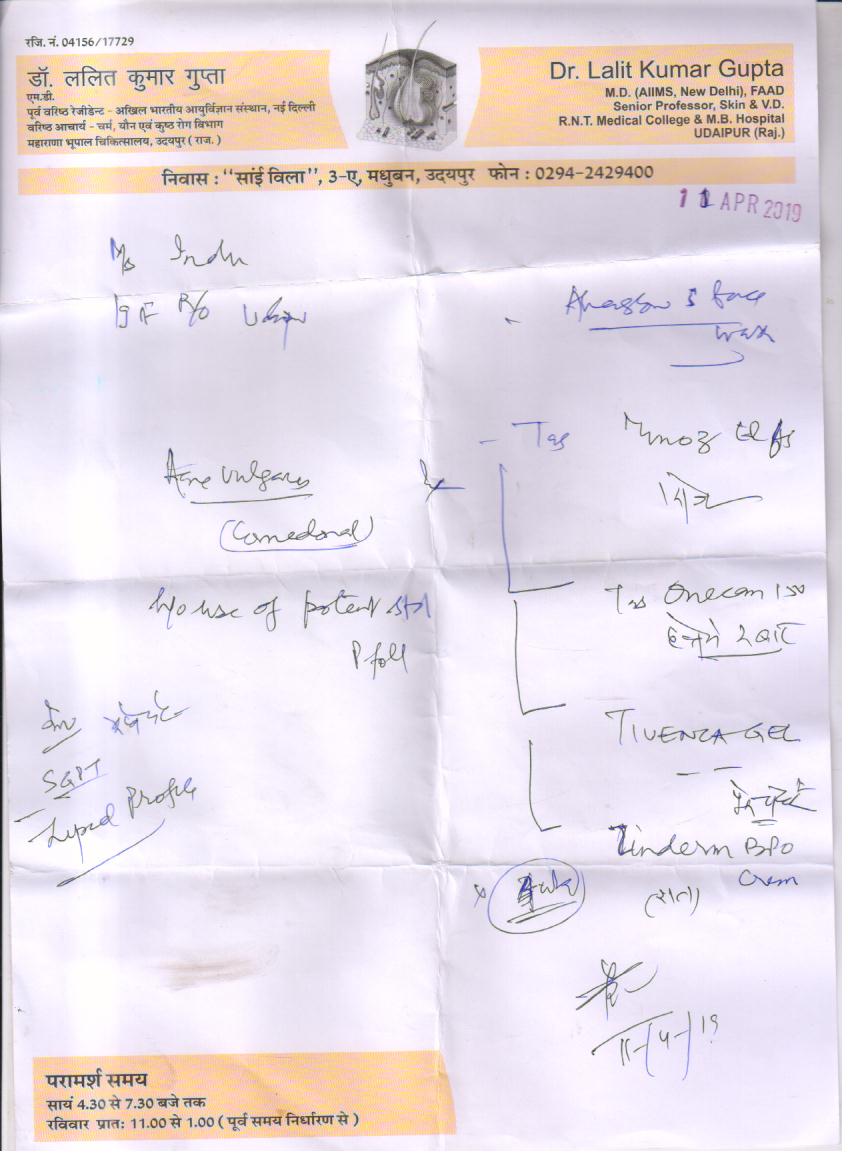 रजि. नं. 04156/17729
डॉ. ललित कुमार गुप्ता
एम.डी.
पूर्व वरिष्ठ रेजीडेन्ट - अखिल भारतीय आयुर्विज्ञान संस्थान, नई दिल्ली
वरिष्ठ आचार्य - चर्म, यौन एवं कुष्ठ रोग विभाग
महाराणा भूपाल चिकित्सालय, उदयपुर ( राज. )
Dr. Lalit Kumar Gupta
M.D. (AIIMS, New Delhi), FAAD
Senior Professor, Skin & V.D.
R.N.T. Medical College & M.B. Hospital
UDAIPUR (Raj.)
निवास : "सांई विला", 3-ए, मधुबन, उदयपुर फोन : 0294-2429400
11 APR 2019
Indu
19 F R/o
face
wash
Tab
Acne vulgaris
(Comedonal)
h/o use of potent
Tab Onecan 150
SGPT
Lipid Profile
TIVENZA GEL
Zinderm BPO
Cream
(रात)
11-4-19
परामर्श समय
सायं 4.30 से 7.30 बजे तक
रविवार प्रात: 11.00 से 1.00 ( पूर्व समय निर्धारण से )